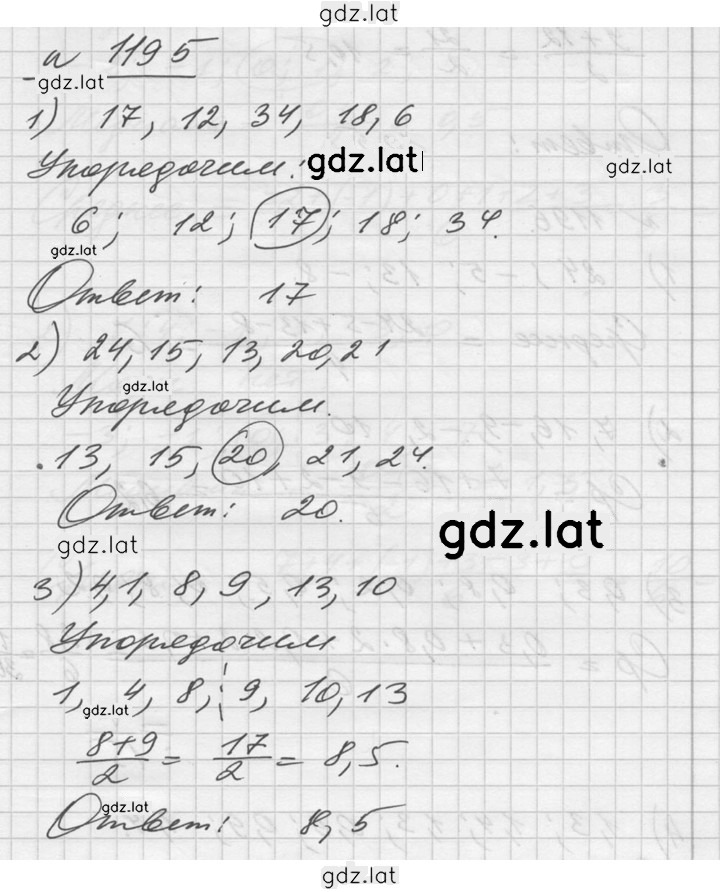 gdz.lat
1195
gdz.lat
1) 17, 12, 34, 18, 6
Упорядочим:
gdz.lat
gdz.lat
6; 12; 17; 18; 34.
gdz.lat
Ответ: 17
2) 24, 15, 13, 20, 21
gdz.lat
Упорядочим.
13, 15, 20, 21, 24.
Ответ: 20.
gdz.lat
gdz.lat
3) 4, 1, 8, 9, 13, 10
Упорядочим
1, 4, 8, 9, 10, 13
gdz.lat
8+9/2 = 17/2 = 8,5.
gdz.lat
Ответ: 8,5
gdz.lat